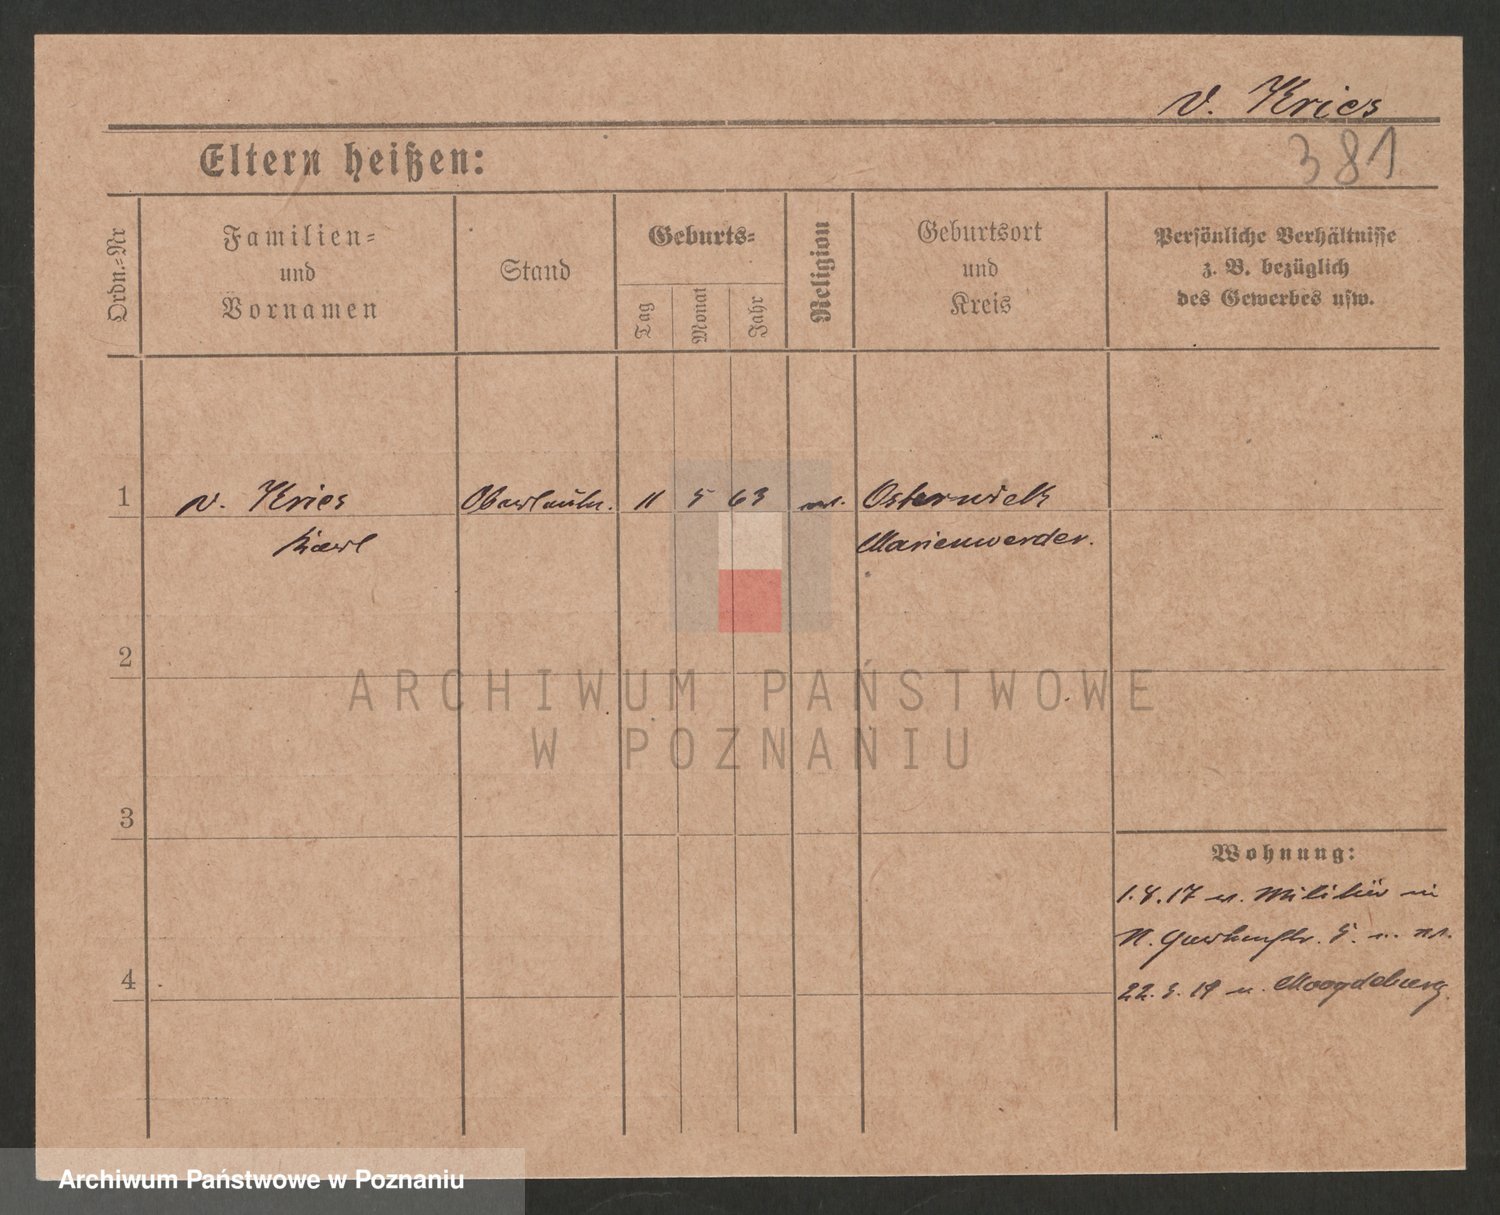 v. Kries
381
Eltern heißen:
Ordn.=Nr
Familien=
und
Vornamen
Stand
Geburts=
Tag
Monat
Jahr
Religion
Geburtsort
und
Kreis
Persönliche Verhältnisse
z. B. bezüglich
des Gewerbes usw.
1
v. Kries
Karl
Oberleutn.
11
5
63
Osterwick
Marienwerder.
2
3
4
Wohnung:
1.8.17 v. Militär in
5.
22.3.19 n. Magdeburg.
ARCHIWUM PAŃSTWOWE
W POZNANIU
Archiwum Państwowe w Poznaniu